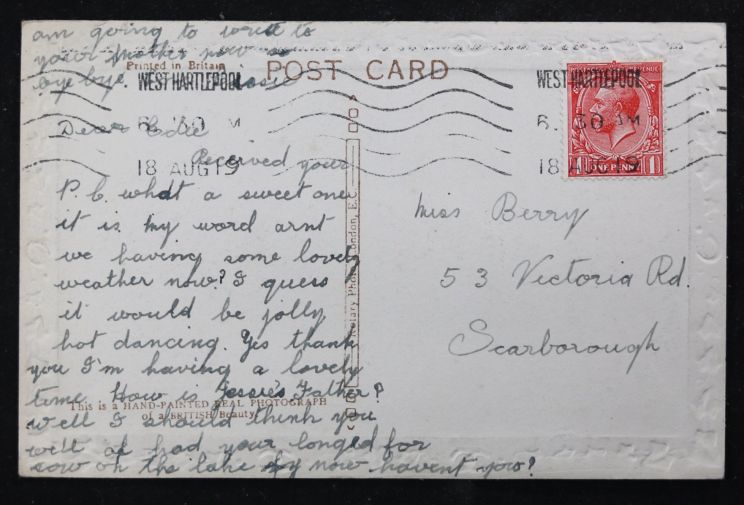 am going to write to
your mother now so
bye bye. Rosie
Printed in Britain
POST CARD
WEST HARTLEPOOL
6. 30 AM
18 AUG 19
WEST HARTLEPOOL
6. 30 AM
18 AUG 19
ONE PENNY
Dear Edie
Received your
P.C. what a sweet one
it is. My word arnt
we having some lovely
weather now? I guess
it would be jolly
hot dancing. Yes thank
you I'm having a lovely
time How is Jessie's Father?
well I should think you
will of had your longed for
row on the lake by now havent you?
This is a HAND-PAINTED REAL PHOTOGRAPH
of a BRITISH Beauty
London, E.C.
Miss Berry
53 Victoria Rd.
Scarborough